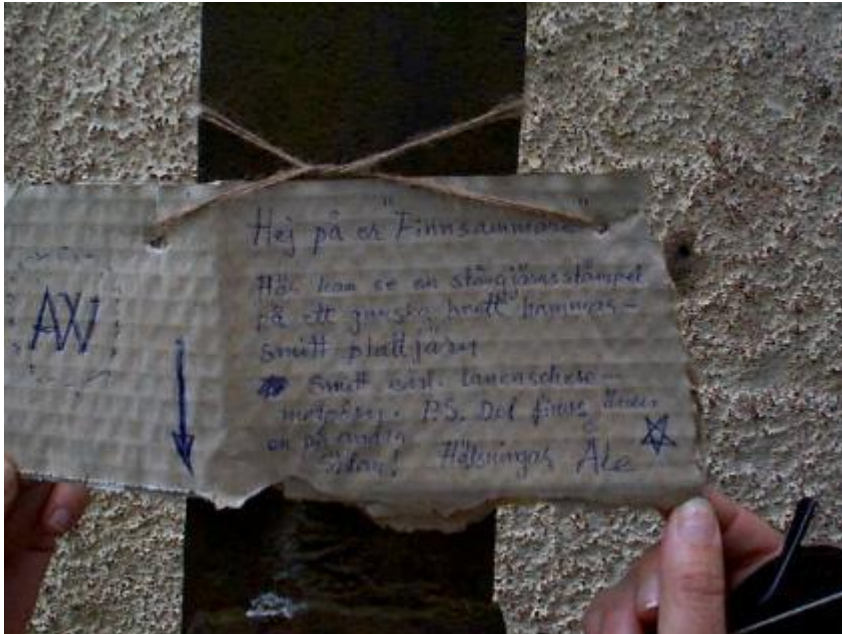 AW
Hej på er "Finnsammare"
Här kan se en stångjärnsstämpel
på ett ganska brett hammar-
smitt plattjärn
smitt enl. lancashire-
metoden. P.S. Det finns även
en på andra
sidan! Hälsningar Åke